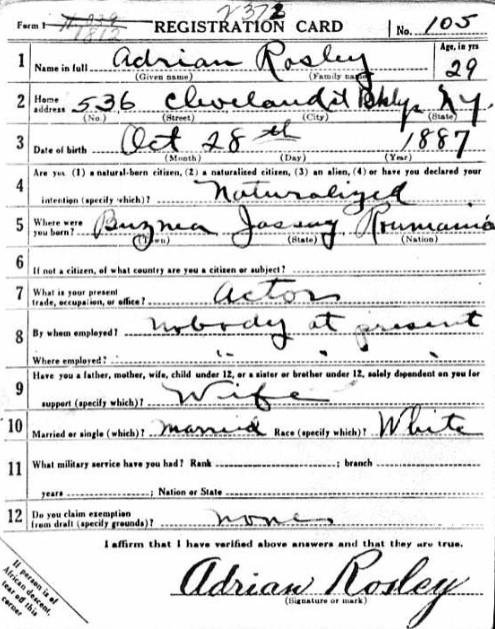 Form 1 1812 2372 REGISTRATION CARD No. 105
1 Name in full Adrian Rosley Age, in yrs 29
(Given name) (Family name)
2 Home address 536 Cleveland St Bklyn NY.
(No.) (Street) (City) (State)
3 Date of birth Oct 28th 1887
(Month) (Day) (Year)
4 Are you (1) a natural-born citizen, (2) a naturalized citizen, (3) an alien, (4) or have you declared your
intention (specify which)? Naturalized
5 Where were you born? Buznea Jassay Roumania
(Town) (State) (Nation)
6 If not a citizen, of what country are you a citizen or subject?
7 What is your present trade, occupation, or office? Actor
8 By whom employed? nobody at present
Where employed? " " "
9 Have you a father, mother, wife, child under 12, or a sister or brother under 12, solely dependent on you for
support (specify which)? Wife
10 Married or single (which)? married Race (specify which)? White
11 What military service have you had? Rank ; branch
years ; Nation or State
12 Do you claim exemption from draft (specify grounds)? none
I affirm that I have verified above answers and that they are true.
Adrian Rosley
(Signature or mark)
If person is of
African descent,
tear off this
corner